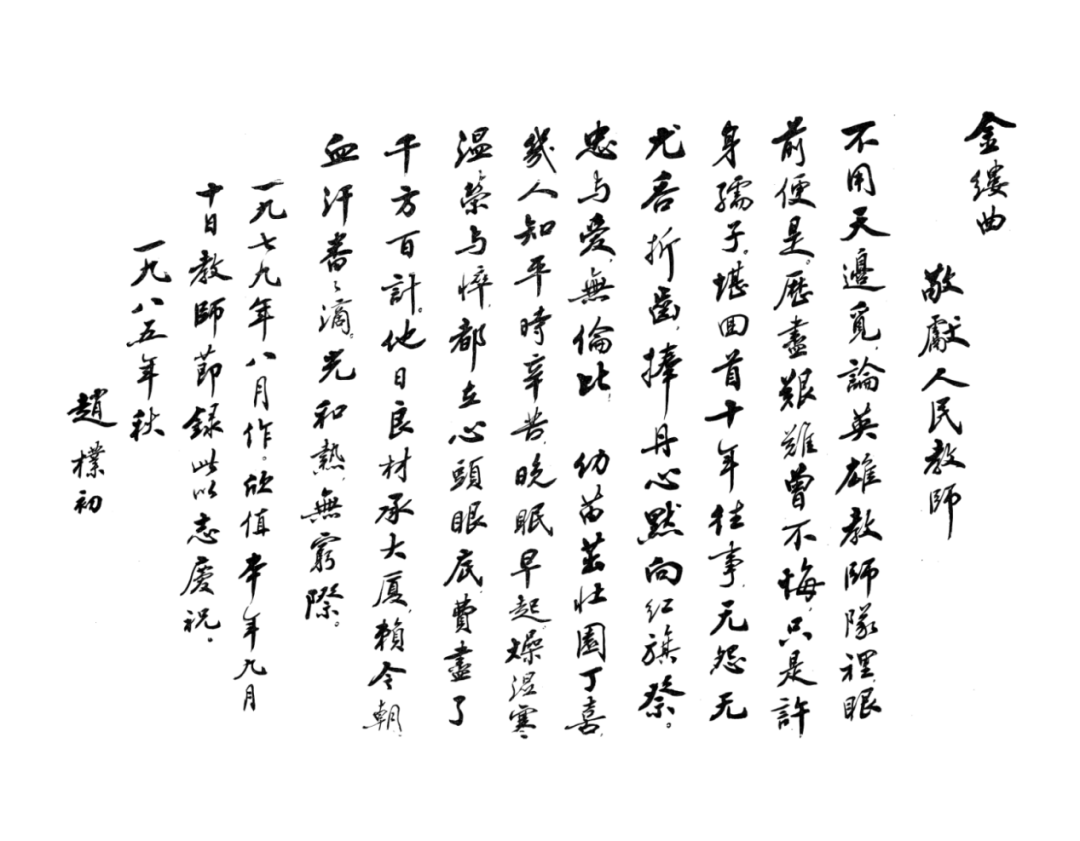 金縷曲
敬獻人民教師
不用天邊覓，論英雄教師隊裡，眼
前便是。歷盡艱難曾不悔，只是許
身孺子。堪回首十年往事，无怨无
尤吞折齒，捧丹心默向红旗祭。
忠与愛，無倫比。 幼苗茁壯園丁喜，
幾人知平時辛苦，晚眠早起。燥湿寒
温榮与悴，都在心頭眼底，費盡了
千方百計。他日良材承大厦，賴今朝，
血汗番〻滴。光和熱，無窮際。
一九七九年八月作。欣值本年九月
十日教師節録此以志慶祝。
一九八五年秋
趙樸初